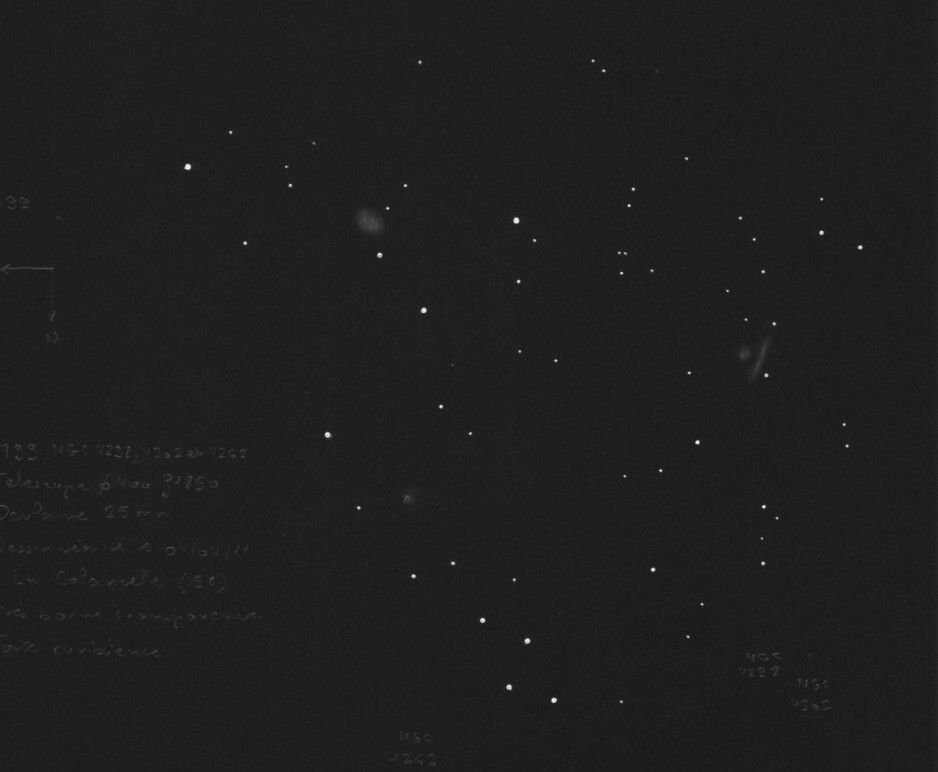 99
N
M99, NGC 4298, 4302 et 4262
Telescope φ400
Oculaire 25 mm
04/04/11
La Colancelle (58)
Très bonne transparence
turbulence
NGC
4298
NGC
4302
NGC
4262